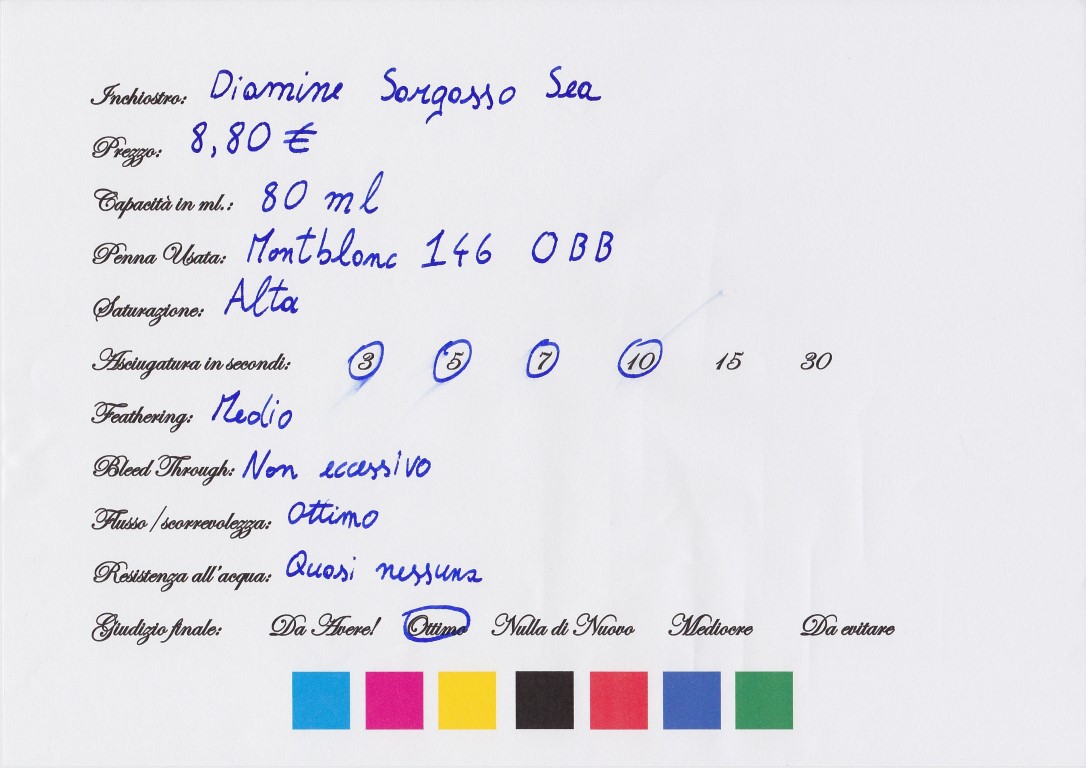 Inchiostro: Diamine Sargasso Sea
Prezzo: 8,80 €
Capacità in ml.: 80 ml
Penna Usata: Montblanc 146 OBB
Saturazione: Alta
Asciugatura in secondi: 3 5 7 10 15 30
Feathering: Medio
Bleed Through: Non eccessivo
Flusso/scorrevolezza: Ottimo
Resistenza all'acqua: Quasi nessuna
Giudizio finale: Da Avere! Ottimo Nulla di Nuovo Mediocre Da evitare